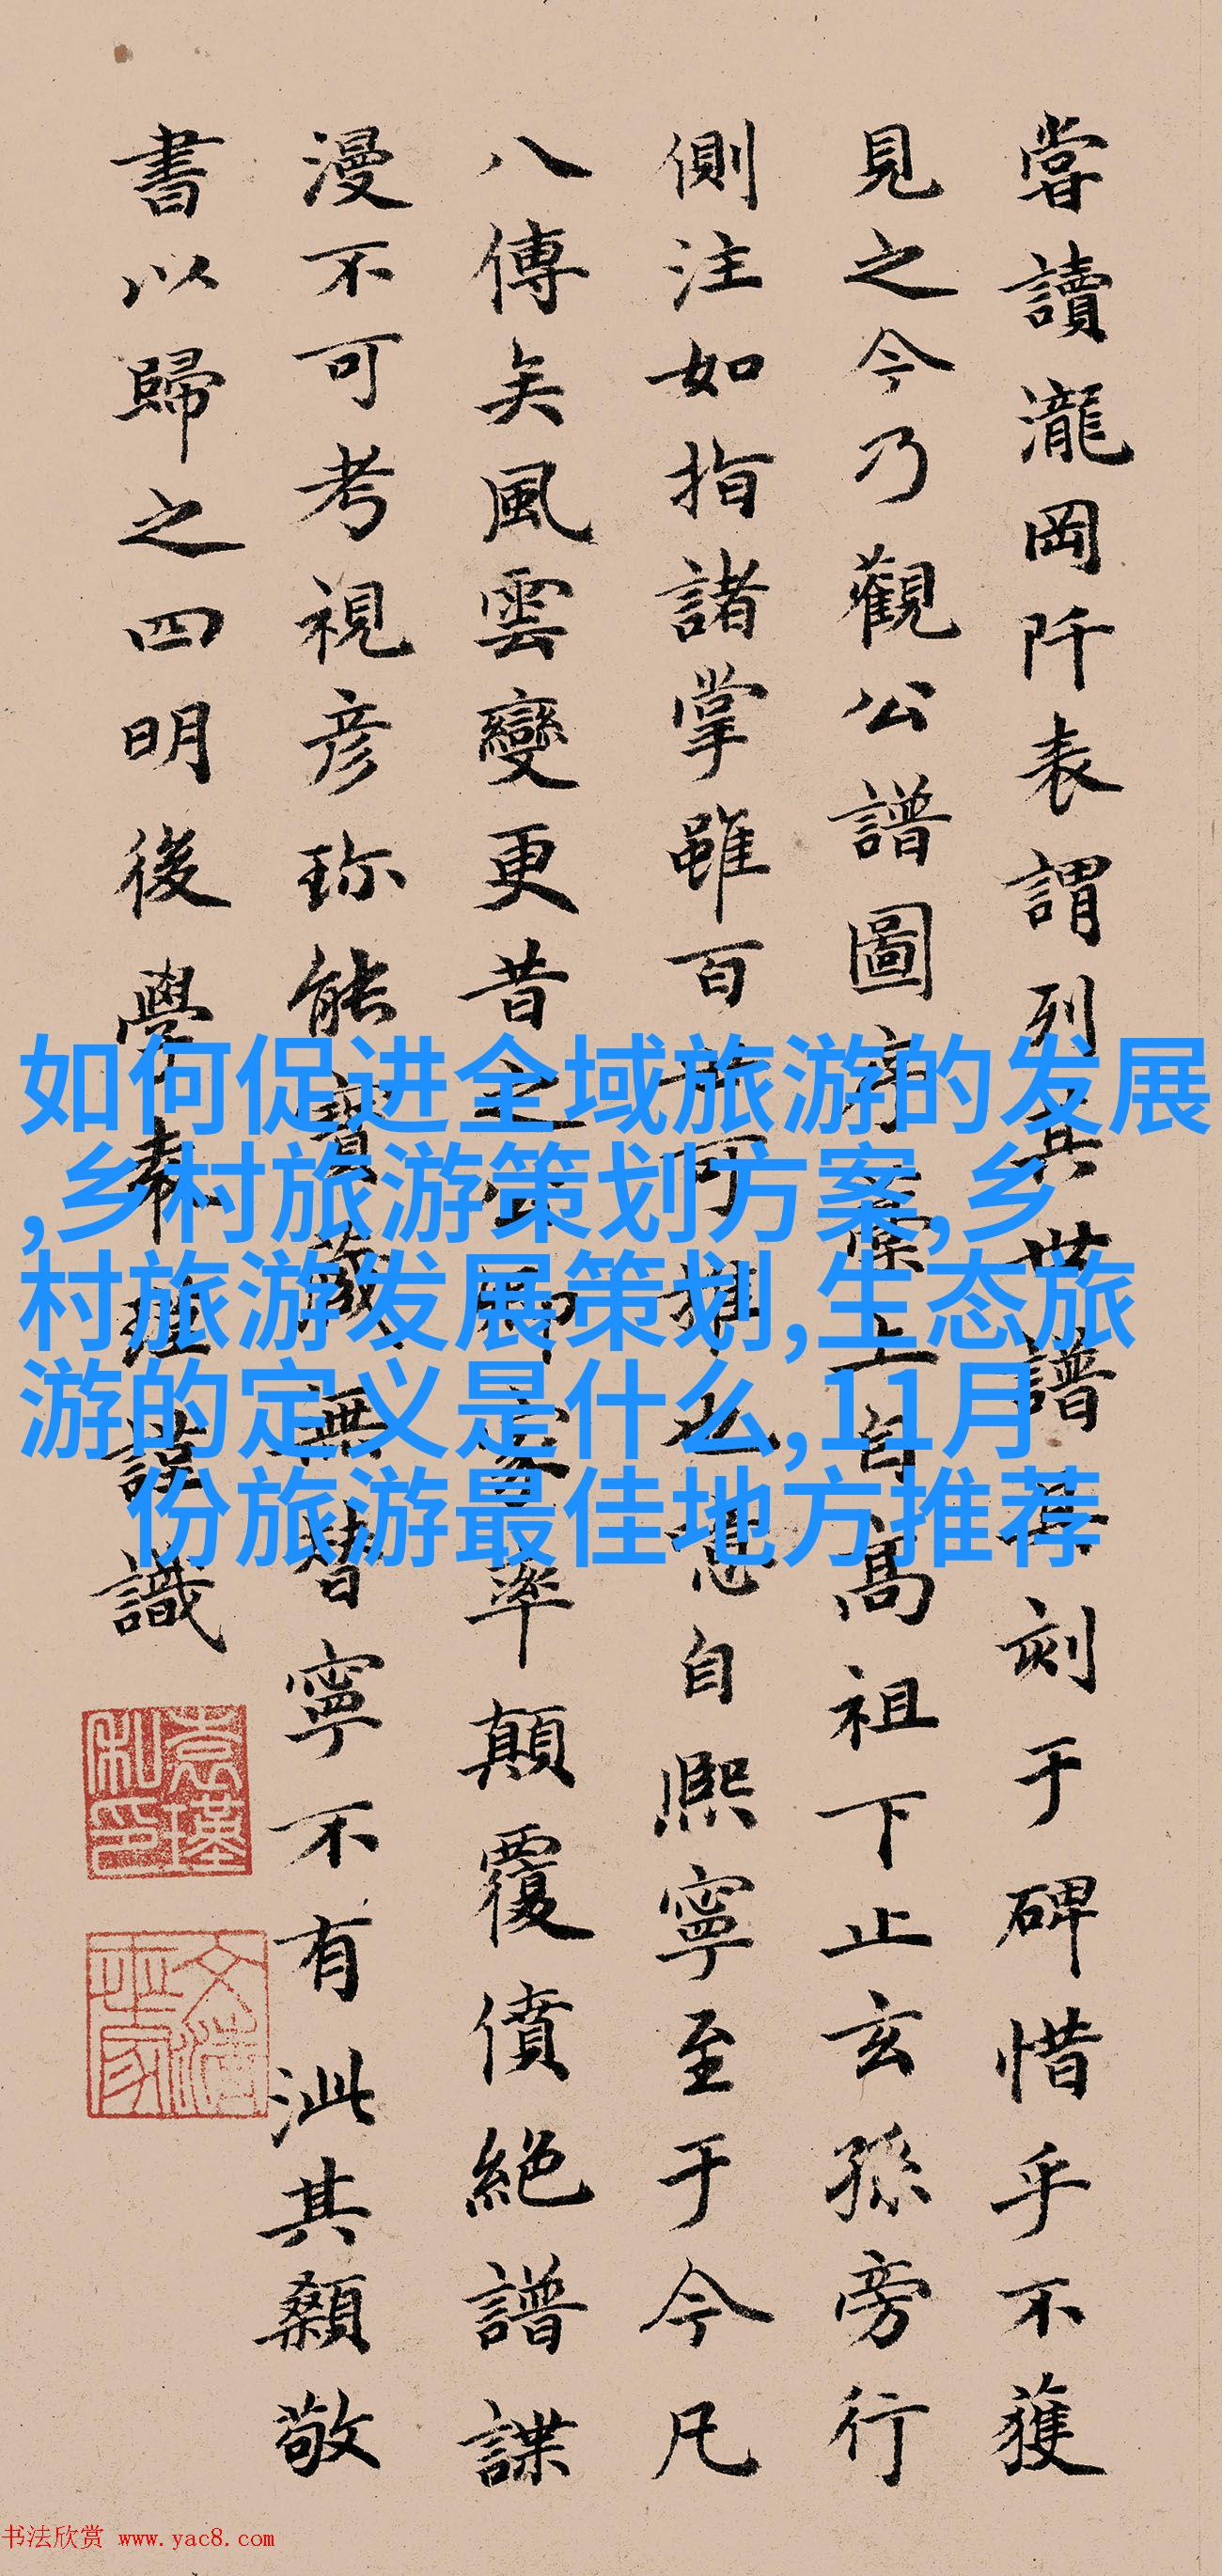 嘗讀瀧岡阡表謂列其世譜具刻于碑惜乎不獲
見之今乃觀公譜圖序稾上自高祖下止玄孫旁行
側注如指諸掌雖百可也自熈寧至于今凡
八傳矣風雲變更昔之家率顛覆僨絕譜諜
漫不可考視彥珎能寶藏無替寧不有泚其顙敬
書以歸之四明後學袁瑾謹識
袁瑾私印
文清世家
如何促进全域旅游的发展
,乡村旅游策划方案,乡
村旅游发展策划,生态旅
游的定义是什么,11月
份旅游最佳地方推荐
书法欣赏 www.yac8.com